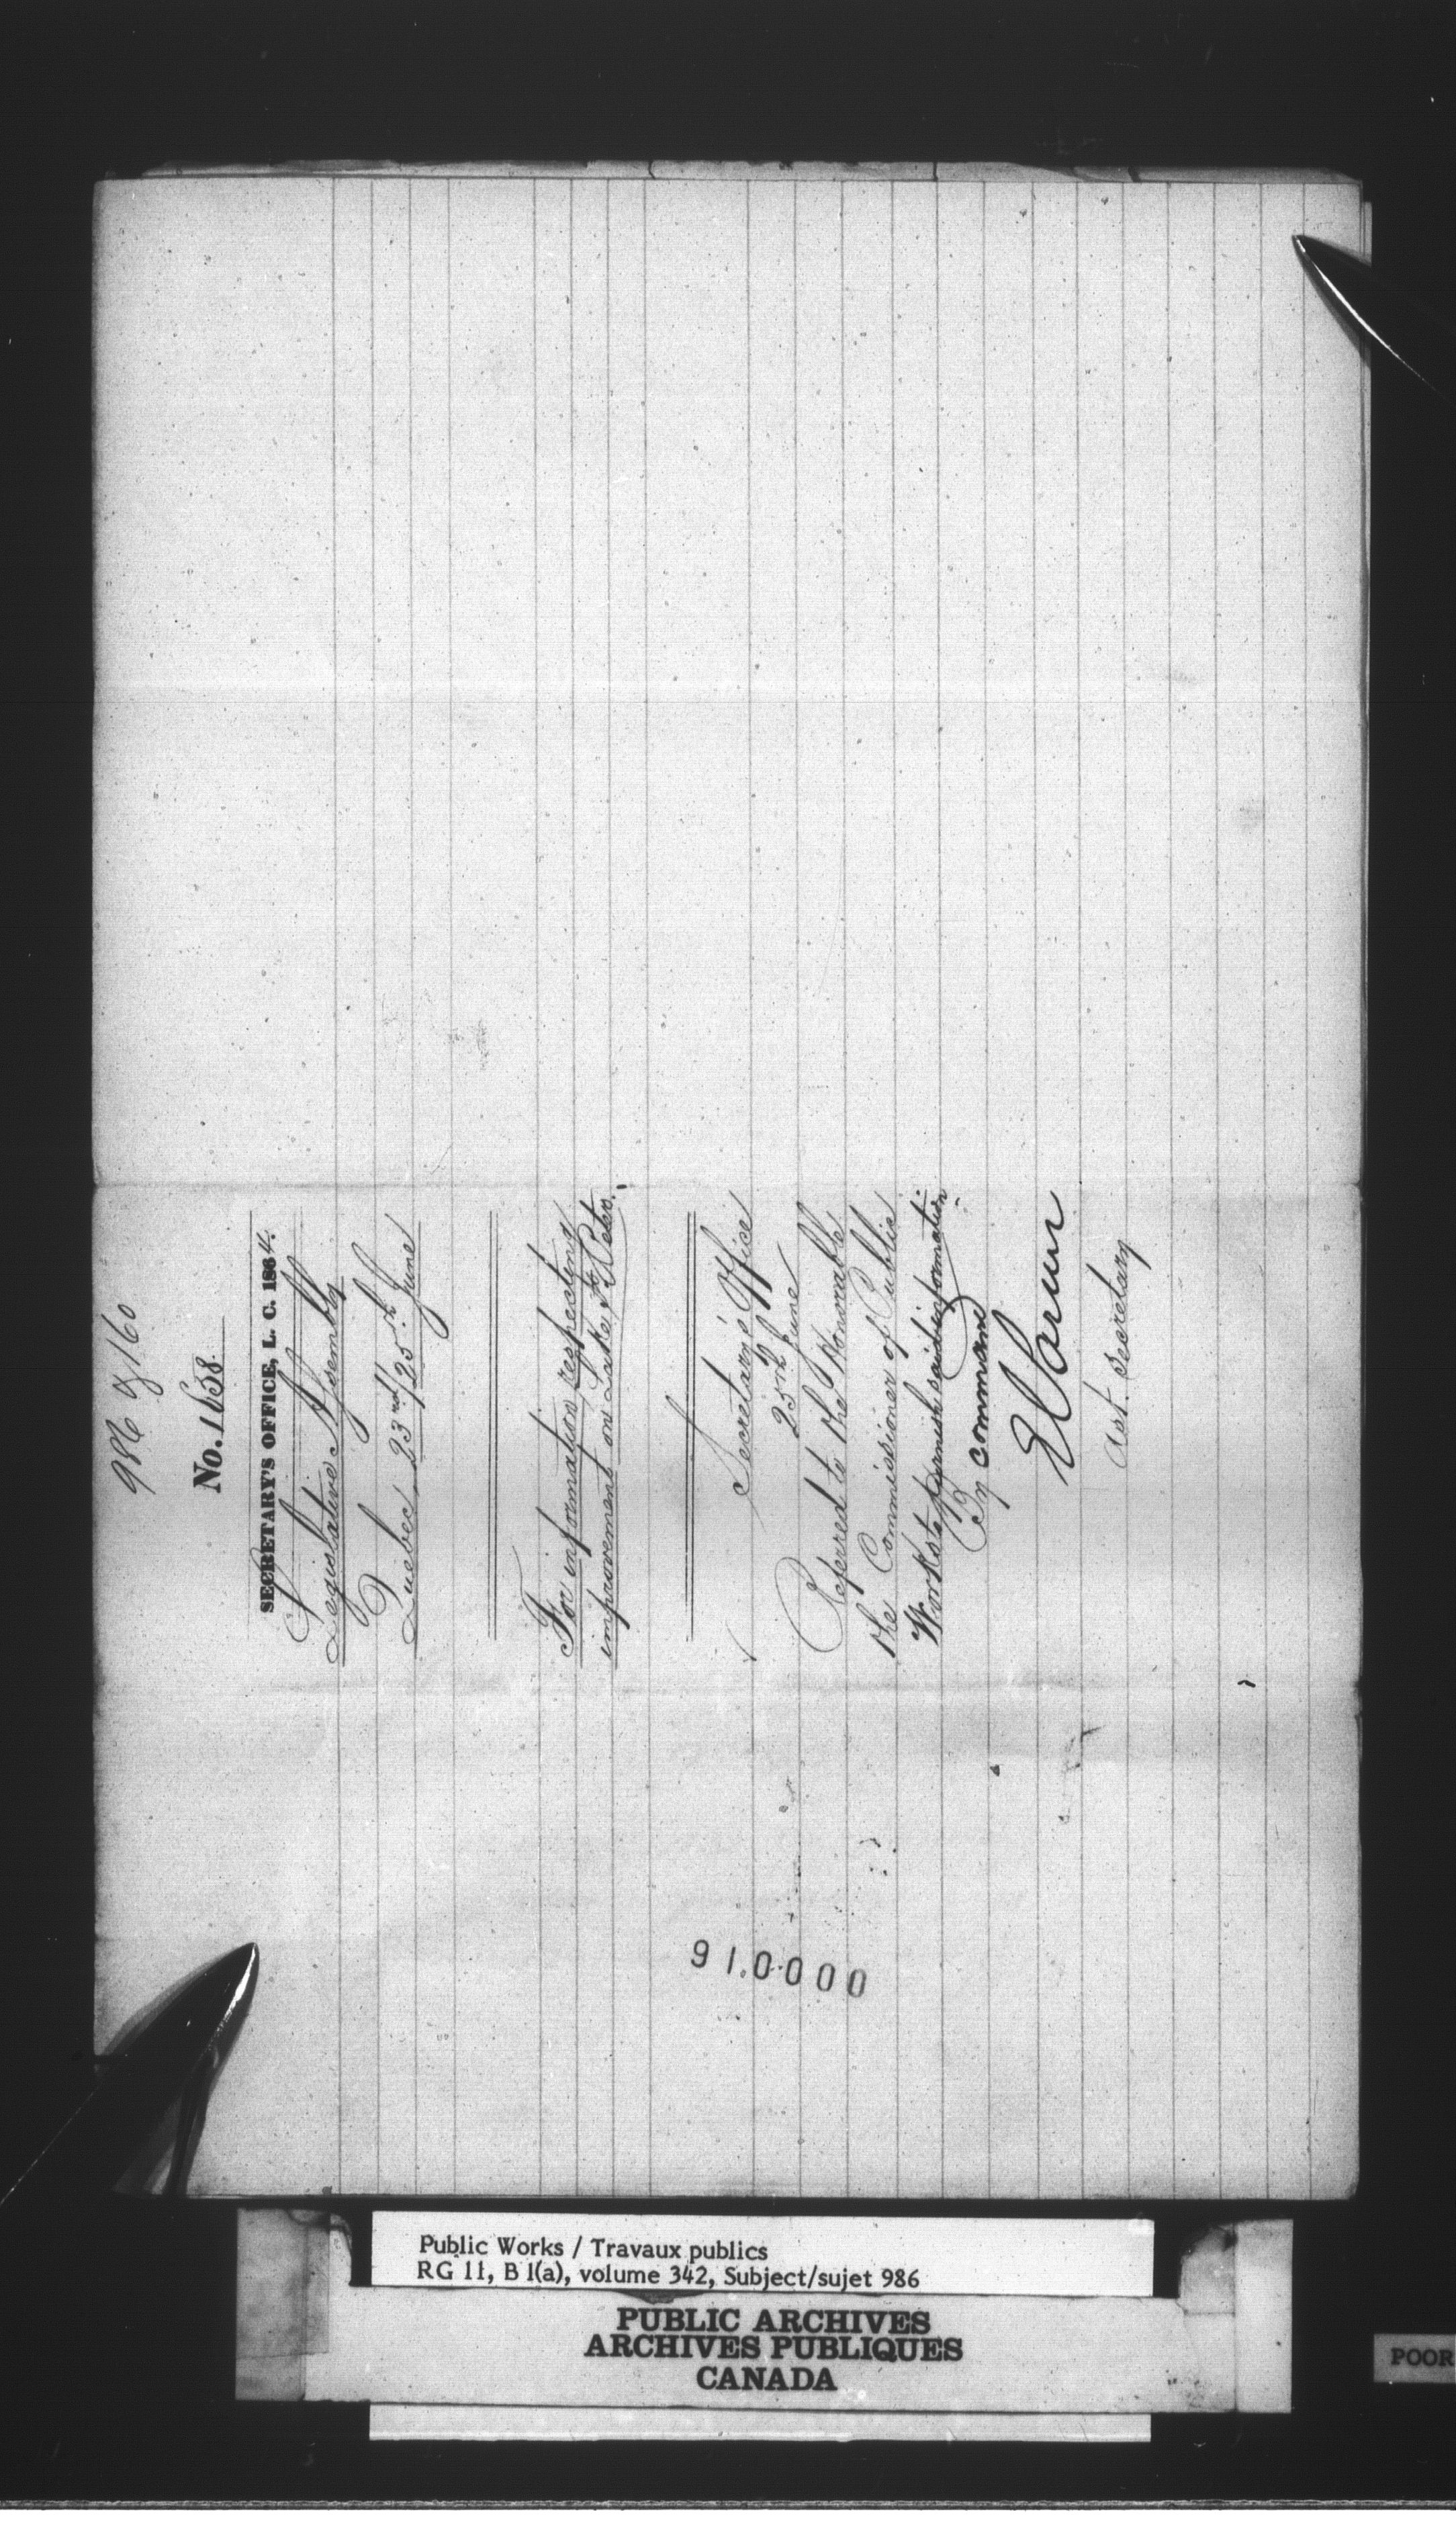 986 of 160
No. 1658
SECRETARY'S OFFICE, L. C. 1864.
Legislative Assembly
Quebec 23rd/25th June
For information respecting
improvement on Lake St. Peter.
Secretary's Office
25th June
Referred to the Honorable
the Commissioner of Public
Works to furnish said information
By command
Asst. Secretary
91.0.000
Public Works / Travaux publics
RG 11, B 1(a), volume 342, Subject/sujet 986
PUBLIC ARCHIVES
ARCHIVES PUBLIQUES
CANADA
POOR